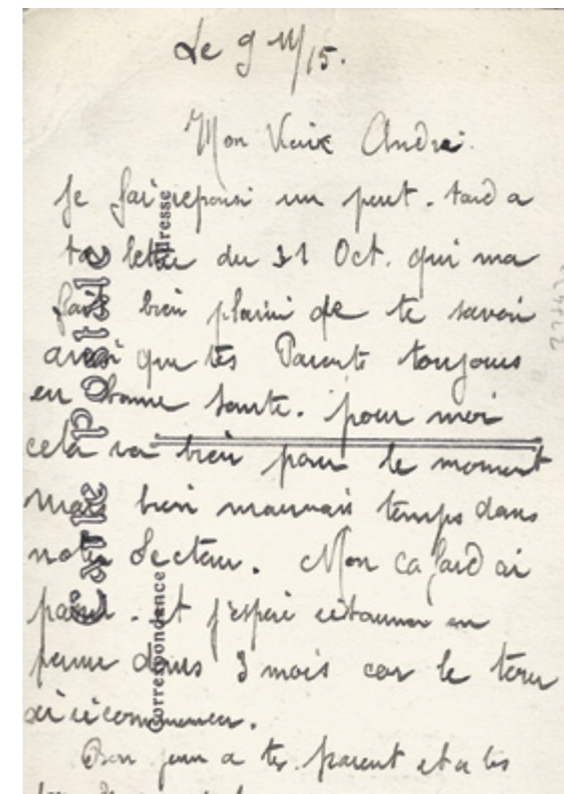 Le 9 11/15.
Mon Vieux André.
Je fai reponse un peut. tard a
ta lettre du 31 Oct. qui ma
fait bien plaisir de te savoir
ainsi que tes Parents toujours
en bonne sante. pour moi
cela va bien pour le moment
Mais bien mauvais temps dans
notre Secteur. Mon cafard ai
passé. et j'espere retourner en
perme dans 3 mois car le tour
ai recommencer.
Bon jour a tes parent et a tes
Carte postale
Correspondance
Adresse